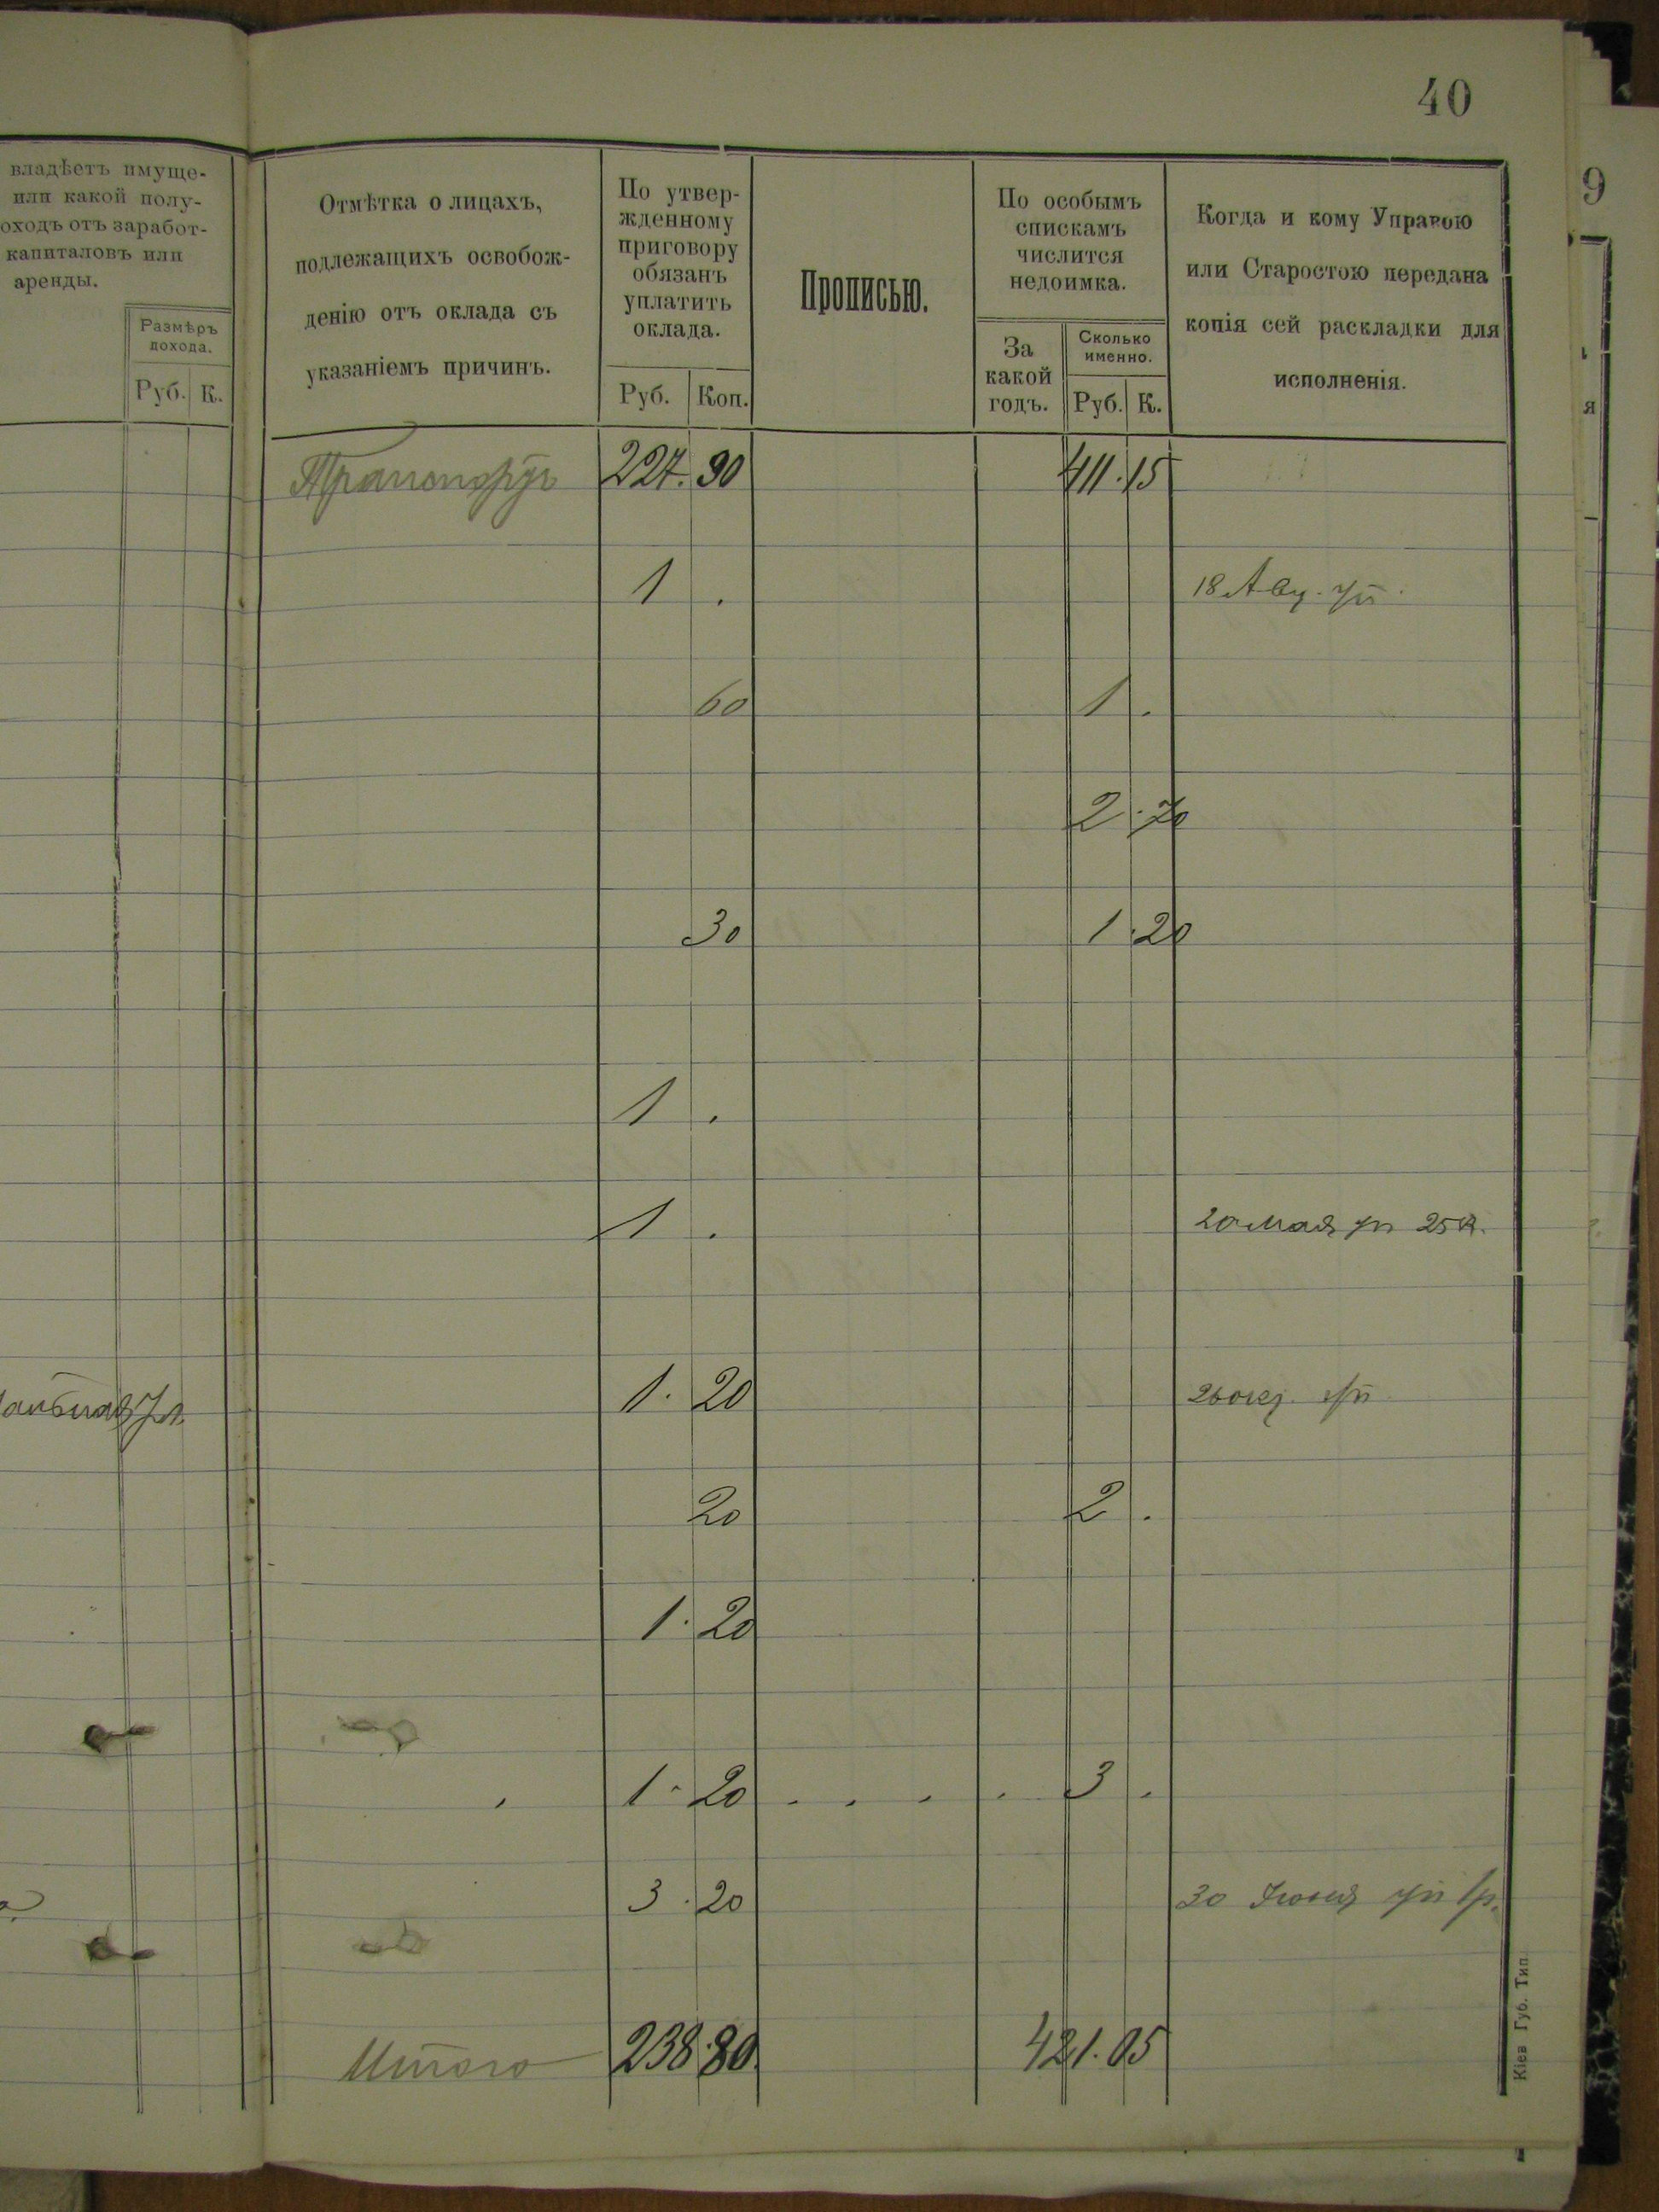 40
9
владѣетъ имуще-
или какой полу-
оходъ отъ заработ-
капиталовъ или
аренды.
Размѣръ
дохода.
Руб. К.
Отмѣтка о лицахъ,
подлежащихъ освобож-
денію отъ оклада съ
указаніемъ причинъ.
По утвер-
жденному
приговору
обязанъ
уплатить
оклада.
Руб. Коп.
Прописью.
По особымъ
спискамъ
числится
недоимка.
За
какой
годъ.
Сколько
именно.
Руб. К.
Когда и кому Управою
или Старостою передана
копія сей раскладки для
исполненія.
я
Транспортъ 227. 90 411. 15
1 . 18 Авг. уп.
60 1 .
2. 70
30 1. 20
1 .
1 . 20 мая уп 25 к.
1. 20 26 окт. уп
20 2 .
1. 20
1. 20 . . . . 3 .
3. 20 30 Июня уп 1 р.
Итого 238. 80 421. 05
Кіев Губ. Тип.